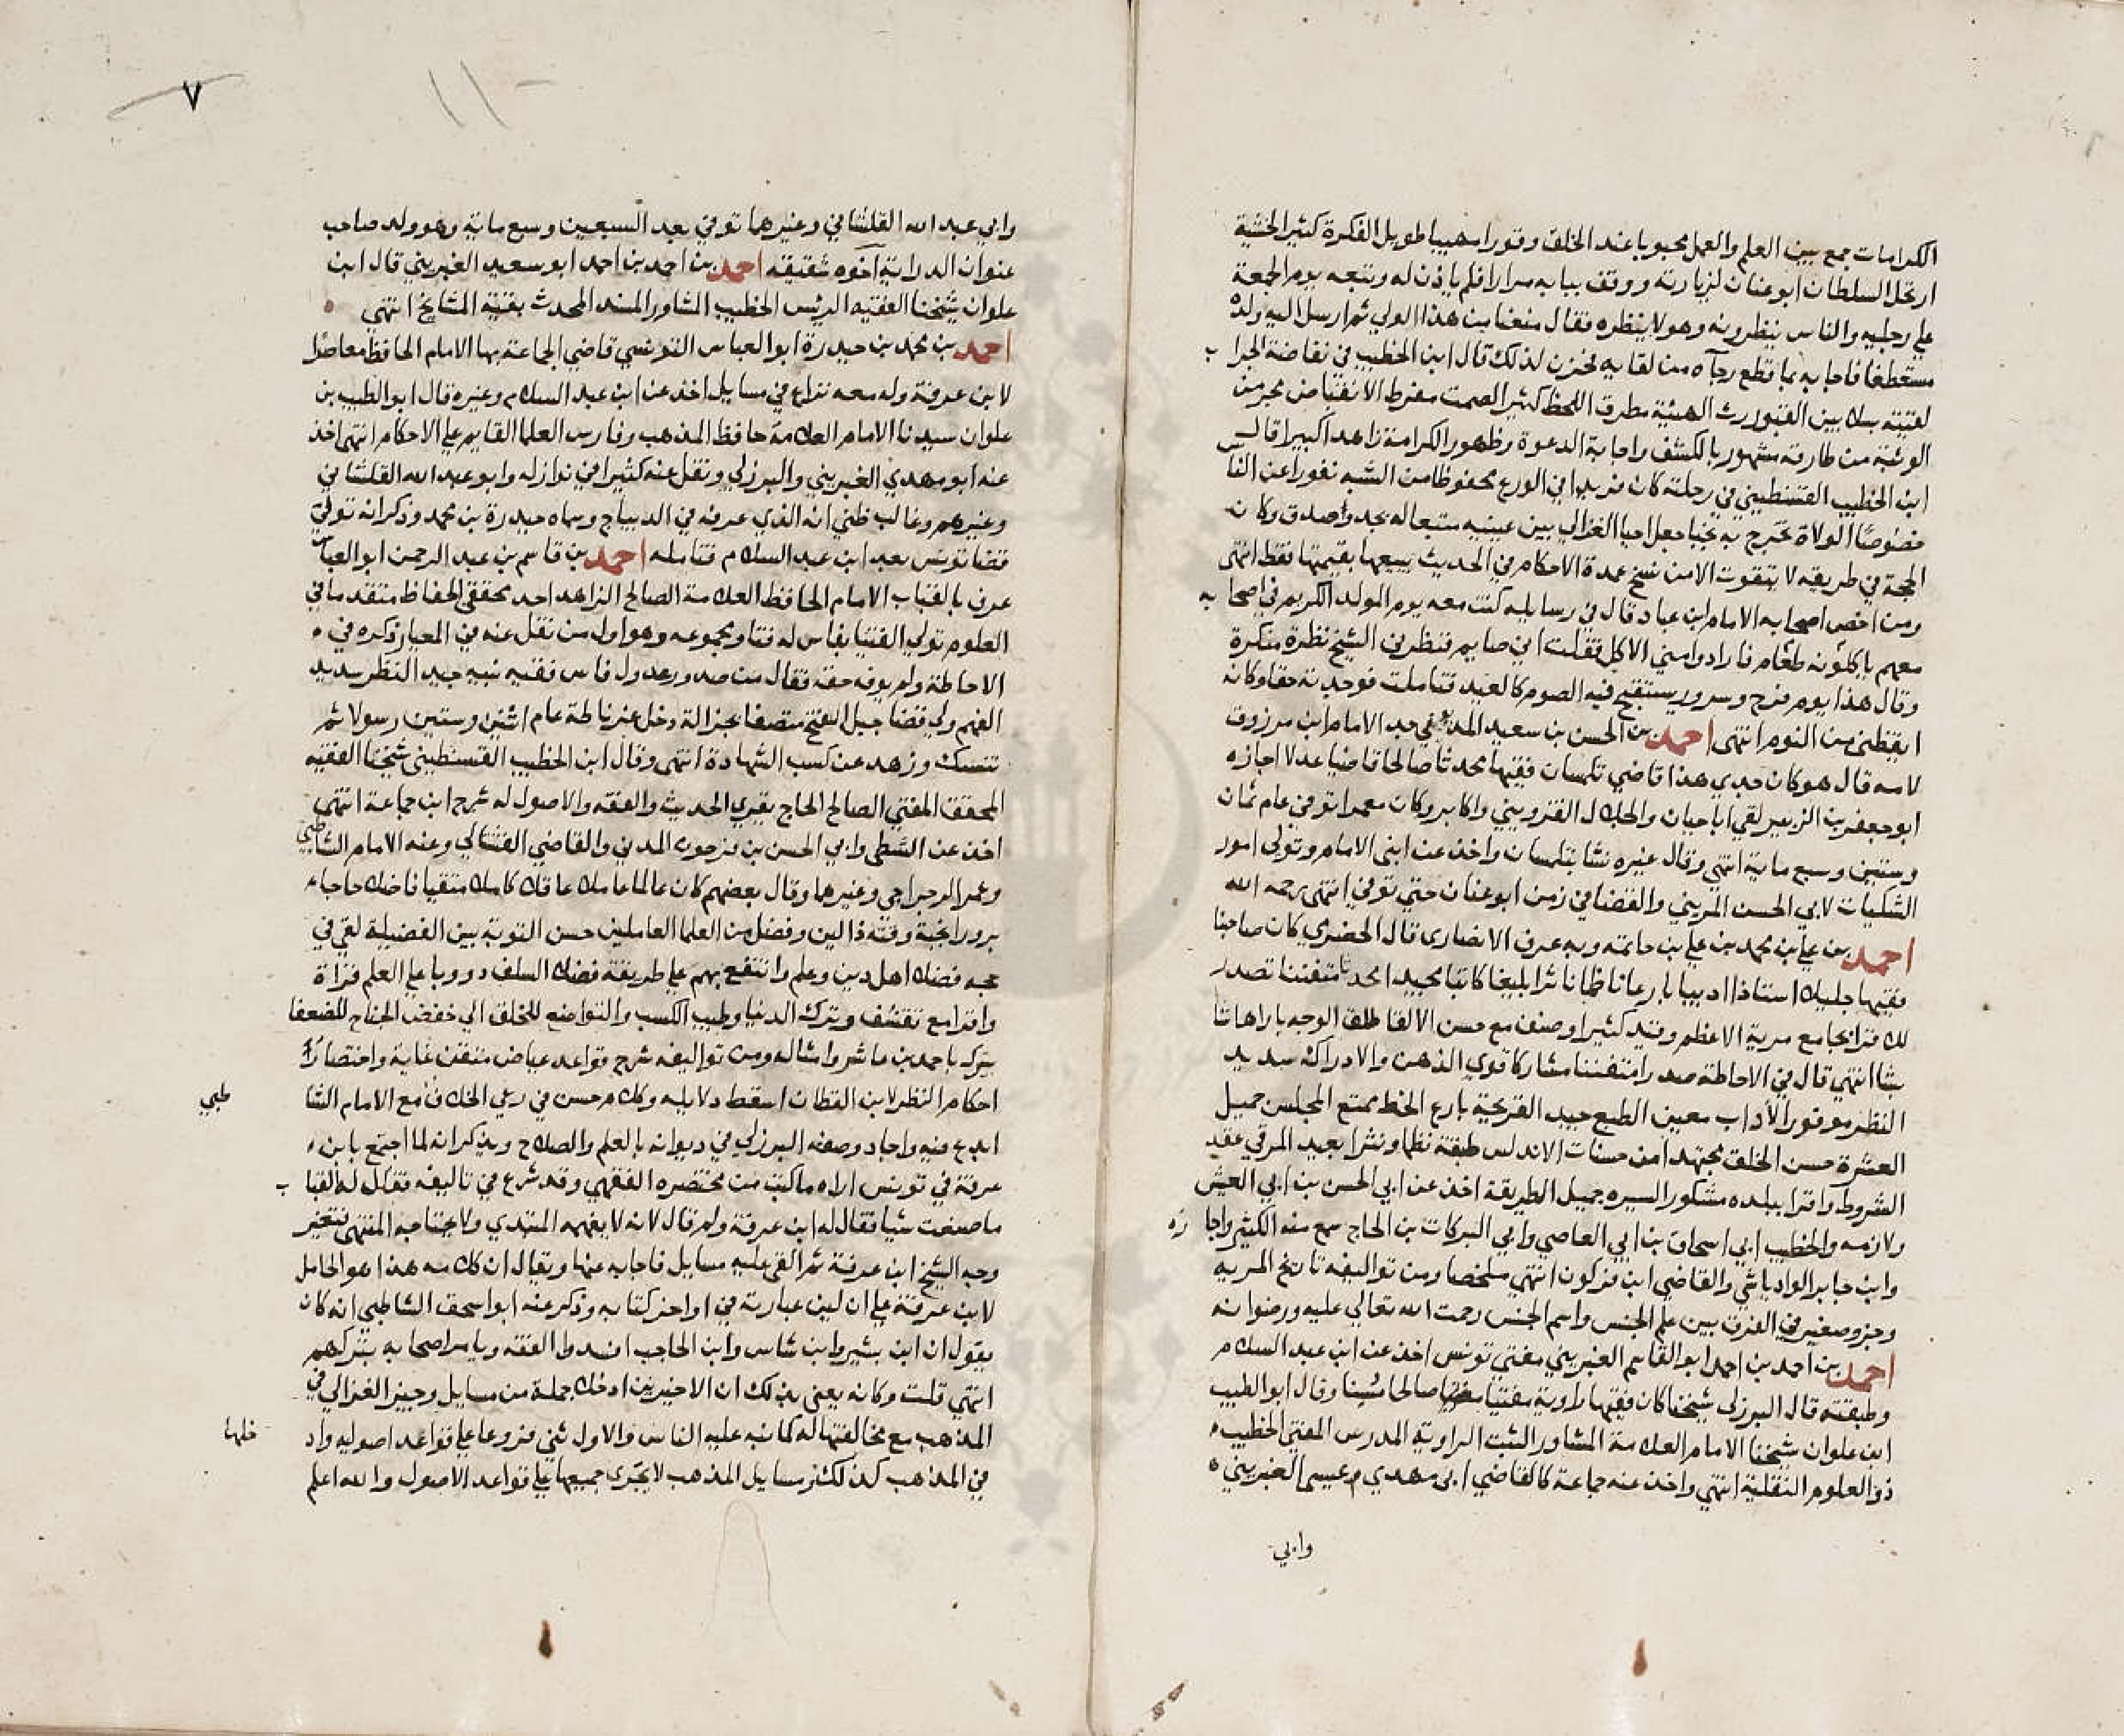 الكرامات جمع بين العلم والعمل محبوبا عند الخلق وقورا مهيبا طويل الفكرة كثير الخشية
ارتحل السلطان ابو عنان لزيارته ووقف ببابه مرارا فلم ياذن له وتبعه يوم الجمعة
علي رجليه والناس ينظرونه وهو لا ينظره فقال منعنا من هذا الولي ثم ارسل اليه ولده
مستعطفا فاجابه بما قطع رجآه من لقايه فحزن لذلك قال ابن الخطيب في نفاضة الجرا ب
لقيته بسلا بين القبور رث الهيئة مطرق اللحظ كثير الصمت مفرط الانقباض
الوثبة من طارقه مشهور بالكشف واجابة الدعوة وظهور الكرامة زاهدا كبيرا قال
ابن الخطيب القسنطيني في رحلته كان فريدا في الورع محفوظا من الشبه نفورا عن الناس
خصوصا الولاة تخرج به نجبا جعل احيا الغزالي بين عينيه متبعا له بجد وصدق وكان
الحجة في طريقه لا يتقوت الا من نسخ عمدة الاحكام في الحديث يبيعها بقيمتها فقط انتهي
ومن اخص اصحابه الامام ابن عباد قال في رسايله كنت معه يوم المولد الكريم في اصحا به
معهم ياكلونه طعام فارادوا مني الاكل فقلت اني صايم فنظر في الشيخ نظرة منكرة
وقال هذا يوم فرح وسرور يستقبح فيه الصوم كالعيد فتاملت فوجدته حقا وكانه
ايقظني من النوم انتهي احمد بن الحسن بن سعيد المديوني جد الامام ابن مرزوق
لامه قال هو كان جدي هذا قاضي تلمسان فقيها محدثا صالحا قاضيا عدلا اجازه
ابو جعفر بن الزبير لقي ابا حيان والجلال القزويني واكابر وكان معمرا توفي عام ثمان
وستين وسبع ماية انتهي وقال غيره نشا بتلمسان واخذ عن ابني الامام وتولي امور
الشكيات لابي الحسن المريني والقضا في زمن ابو عنان حتي توفي انتهي رحمه الله
احمد بن علي بن محمد بن علي بن خاتمه وبه عرف الانصاري قال الحضري كان صاحبنا
فقيها جليلا استاذا اديبا بارعا ناظما ناثرا بليغا كاتبا مجيدا محدثا متفننا تصدر
للاقرا بجامع مرية الاعظم وقيد كثيرا وصنف مع حسن الالقا طلق الوجه بارا هاشا
بشا انتهي قال في الاحاطة صدرا متفننا مشاركا قوي الذهن والادراك سديد
النظر موفور الآداب معين الطبع جيد القريحة بارع الخط ممتع المجلس جميل
العشرة حسن الخلق مجتهدا من حسنات الاندلس طبقة نظما ونثرا بعيد المرقي عقد
الشروط واقرا ببلده مشكور السيره جميل الطريقة اخذ عن ابي الحسن بن ابي العيش
ولازمه والخطيب ابي اسحاق بن ابي العاصي وابي البركات بن الحاج سمع منه الكثير واجا زه
وابن جابر الوادياشي والقاضي ابن فركون انتهي ملخصا ومن تواليفه تاريخ المريه
وجزو صغير في الفرق بين علم الجنس واسم الجنس رحمت الله تعالي عليه ورضوانه
احمد بن احمد بن احمد ابو القاسم الغبريني مفتي تونس اخذ عن ابن عبد السلام
وطبقته قال البرزلي شيخنا كان فقيها راوية مفتيا صالحا مسنا وقال ابو الطيب
ابن علوان شيخنا الامام العلامة المشاور الثبت الراوية المدرس المفتي الخطيب
ذو العلوم النقلية انتهي واخذ عنه جماعة كالقاضي ابي مهدي عيسي الغبريني
وابي
٧
وابي عبد الله القلشاني وغيرهما توفي بعد السبعين وسبع ماية وهو ولد صاحب
عنوان الدراية آخوه شقيقه احمد بن احمد بن احمد ابو سعيد الغبريني قال ابن
علوان شيخنا الفقيه الريس الخطيب المشاور المسند المحدث بقية المشايخ انتهي
احمد بن محمد بن حيدرة ابو العباس التونسي قاضي الجماعة بها الامام الحافظ معاصرا
لابن عرفة وله معه نزاع في مسايل اخذ عن ابن عبد السلام وغيره قال ابو الطيب بن
علوان سيدنا الامام العلامة حافظ المذهب وفارس العلما القايم علي الاحكام انتهي اخذ
عنه ابو مهدي الغبريني والبرزلي ونقل عنه كثيرا في نوازله وابو عبد الله القلشاني
وغيرهم وغالب ظني انه الذي عرفه في الديباج وسماه حيدرة بن محمد وذكر انه تولي
قضا تونس بعد ابن عبد السلام فتامله احمد بن قاسم بن عبد الرحمن ابو العباس
عرف بالقباب الامام الحافظ العلامة الصالح الزاهد احد محققي الحفاظ متقدما في
العلوم تولي الفتيا بفاس له فتاو مجموعه وهو اول من نقل عنه في المعيار ذكره في
الاحاطة ولم يوفه حقه فقال من صدور عدول فاس فقيه نبيه جيد النظر سديد
الفهم ولي قضا جبل الفتح متصفا بجزالة ودخل غرناطة عام اثنين وستين رسولا ثم
تنسك وزهد عن كسب الشهادة انتهي وقال ابن الخطيب القسنطيني شيخنا الفقيه
المحقق المفتي الصالح الحاج يقري الحديث والفقه والاصول له شرح ابن جماعة انتهي
اخذ عن السطي وابي الحسن بن فرحون المدني والقاضي الفشتالي وعنه الامام الشاطبي
وعمر الرجراجي وغيرهما وقال بعضهم كان عالما عاملا عاقلا كاملا متقيا فاضلا حاجا
برورا نخبة وقته ذا لين وفضل من العلما العاملين حسن التوية بين الفضيلة لقي في
حجه فضلا اهل دين وعلم وانتفع بهم علي طريقة فضلا السلف دووبا علي العلم قراة
واقرا مع تقشف وترك الدنيا وطيب الكسب والتواضع للخلق الي خفض الجناح للضعفا
تبرك باحمد بن عاشر وامثاله ومن تواليفه شرح قواعد عياض متقن غاية واختصار
احكام النظر لابن القطان اسقط دلايله وكلام حسن في رعي الخلاف مع الامام الشا طبي
ابدع فيه واجاد وصفه البرزلي في ديوانه بالعلم والصلاح ويذكر انه لما اجتمع بابن
عرفة في تونس اراه ما كتب من مختصره الفقهي وقد شرع في تاليفه فقال له القبا ب
ما صنعت شيا فقال له ابن عرفة ولم قال لانه لا يفهمه المبتدي ولا يحتاجه المنتهي فتغير
وجه الشيخ ابن عرفة ثم القي عليه مسايل فاجابه عنها ويقال ان كلامه هذا هو الحامل
لابن عرفة علي ان لين عبارته في اواخر كتابه وذكر عنه ابو اسحق الشاطبي انه كان
يقول ان ابن بشير وابن شاس وابن الحاجب افسدوا الفقه ويامر اصحابه بتركهم
انتهي قلت وكانه يعني بذلك ان الاخيرين ادخلا جملة من مسايل وجيز الغزالي في
المذهب مع مخالفتها له كما نبه عليه الناس والاول بني فروعا علي قواعد اصوليه واد خلها
في المذهب كذلك لان مسايل المذهب لا تجري جميعها علي قواعد الاصول والله اعلم